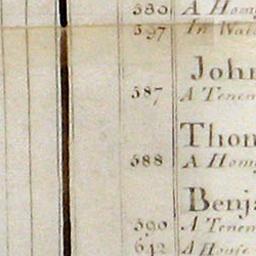 580 A Hom
597 In Wal
John
587 A Tenem
Thom
588 A Hom
Benj
590 A Tenem
642 A House